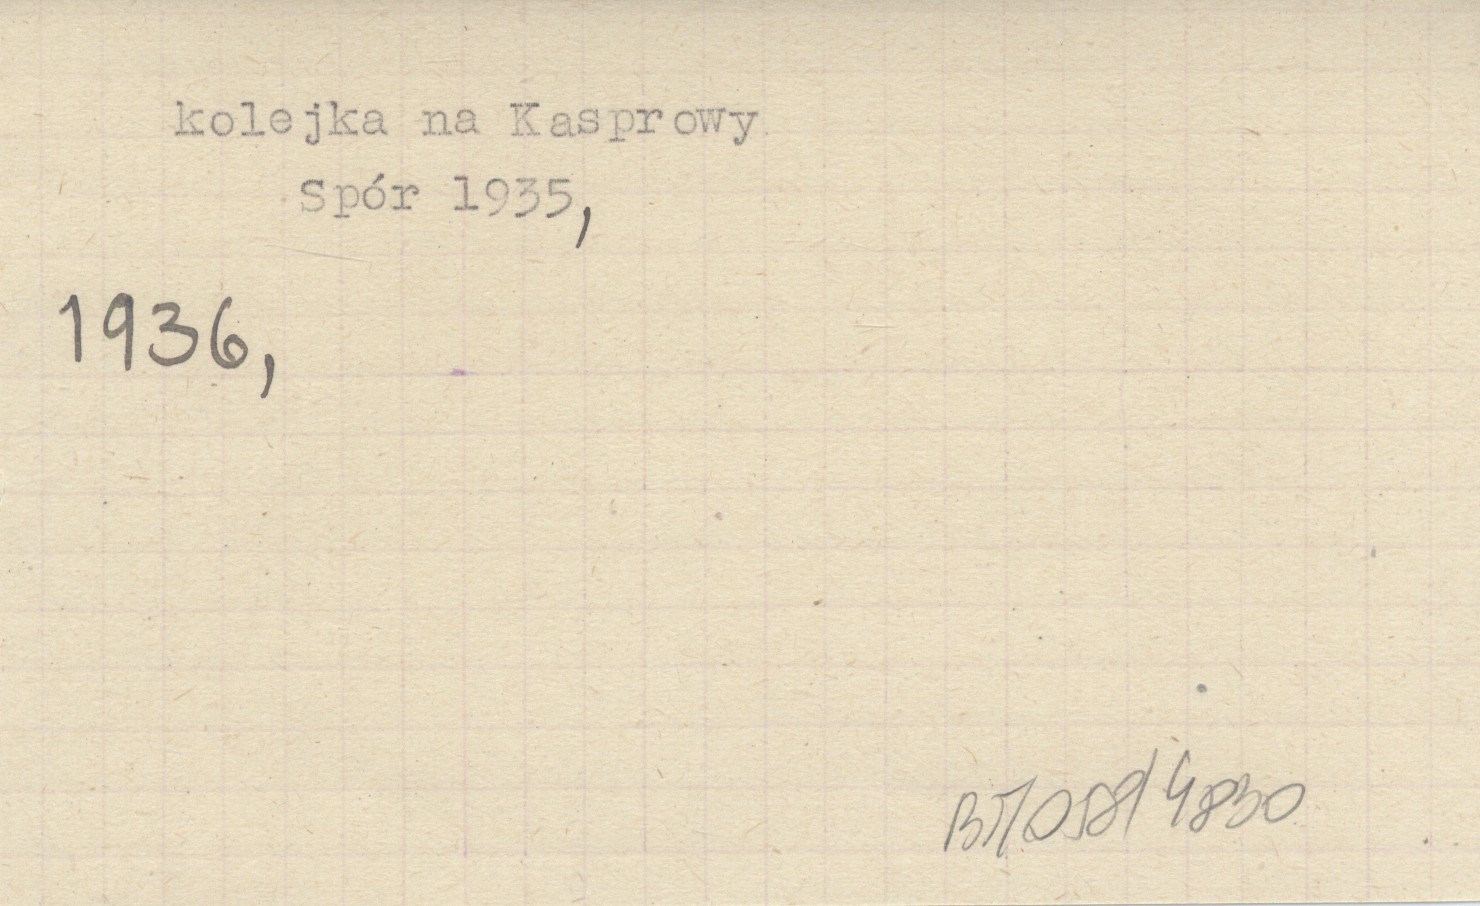 kolejka na Kasprowy
Spór 1935,
1936,
BT/058/4830